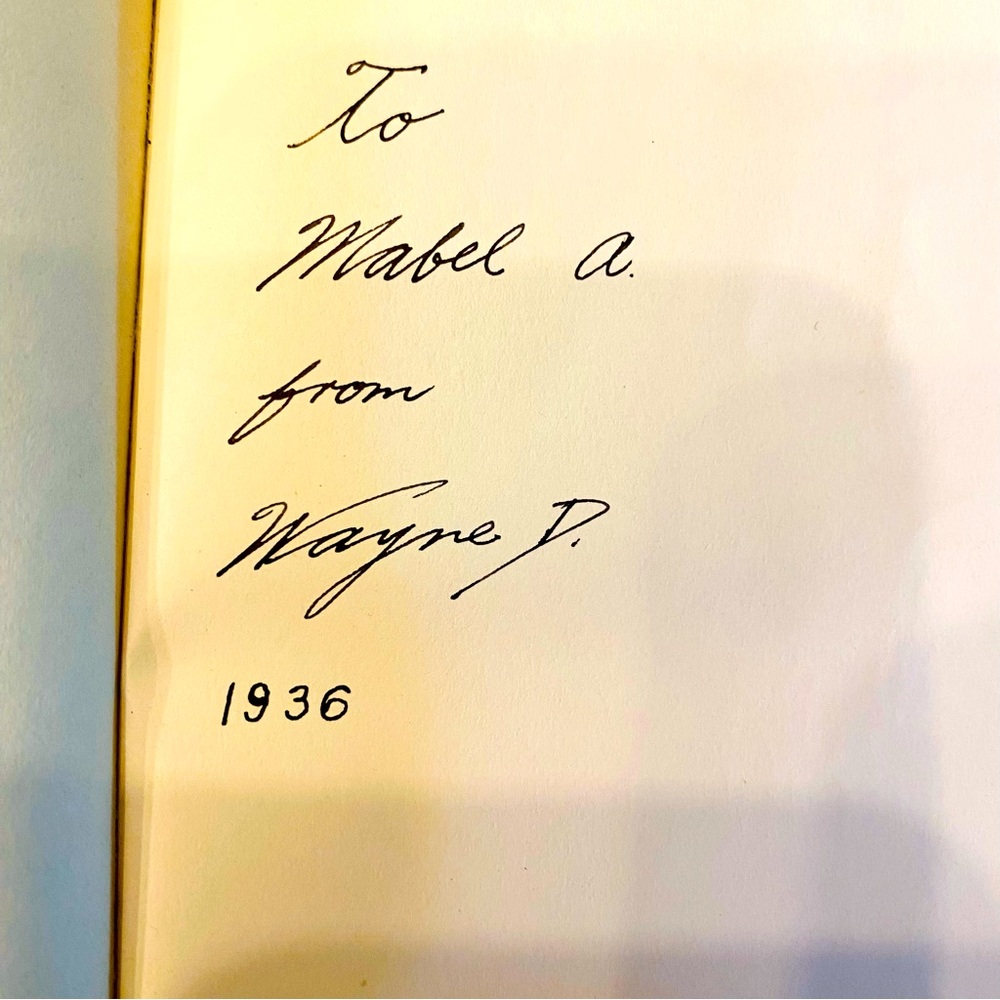 To
Mabel A.
from
Wayne D.
1936